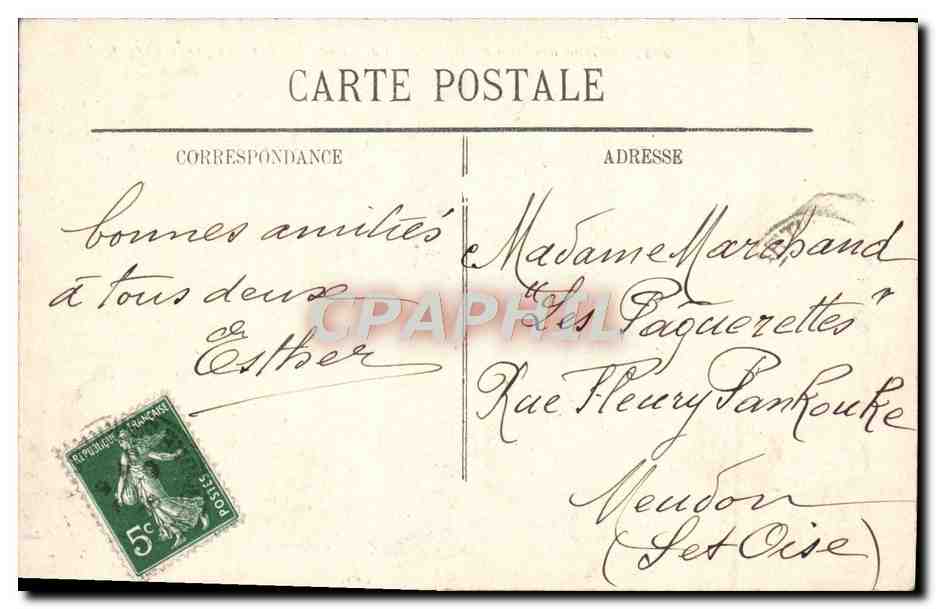 CARTE POSTALE
CORRESPONDANCE
ADRESSE
bonnes amitiés
à tous deux
Esther
Madame Marchand
"Les Pâquerettes"
Rue Fleury Pankouke
Meudon
(S et Oise)
CPAPHIL
REPUBLIQUE FRANÇAISE
POSTES
5c